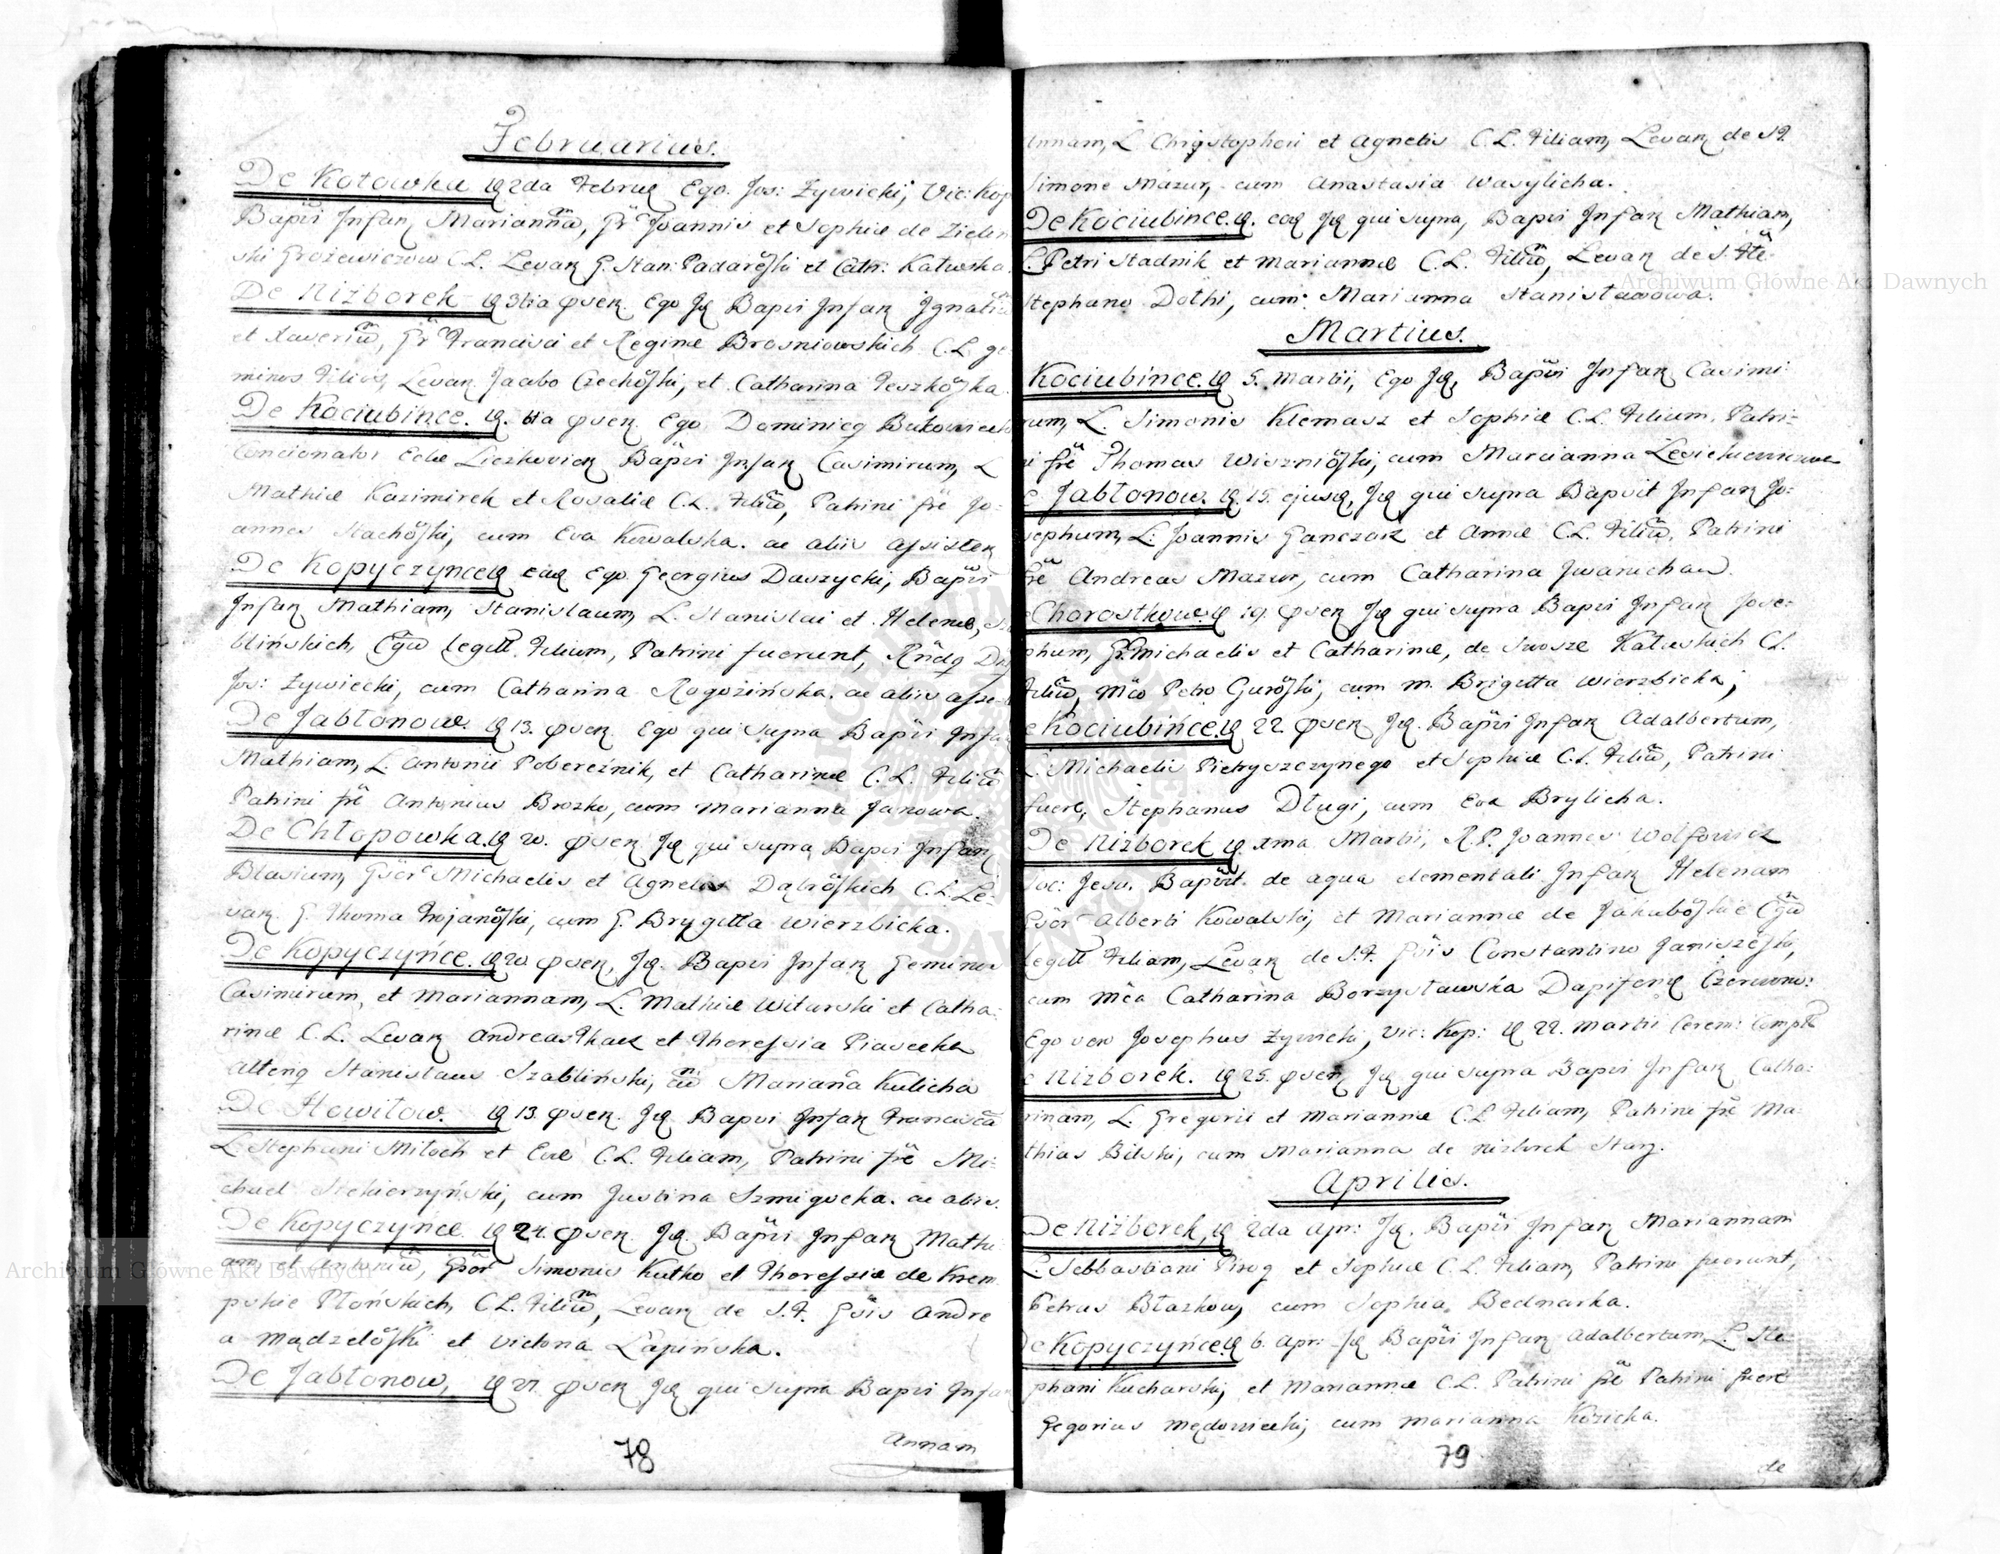 Februarius.
De Kotowka 2da Februa Ego Jos: Zywicki, Vic: Kop
Bapvi Infan Marianna, Joannis et Sophiæ de Zielen
ski Grozewiczow C.L. Levan G. Stan: Padaroski et Cath: Katuska
De Nizborek Ego Bapvi Infan Ignati
et Xaveriu, Francisci et Reginæ Brosniowskich C.L. ge
minos Filios Levan Jacobo Czechoski, et Catharina Teszkoska
De Kociubince. Ego Dominicq Bukowiecki
Concionator Eclæ Bapvi Infan Casimirum, L
Mathiæ Kazimirek et Rosaliæ C.L. Filiu, Patrini fre Jo:
annes Stachoski, cum Eva Kowalska. ac aliis assisten
De Kopyczynce ead Ego Georgius Daszycki, Bapvi
Infan Mathiam, Stanislaum, L. Stanislai et Helenæ, Sza
blinskich, legitt. Filium, Patrini fuerunt, Rndq Dnq
Jos: Zywiecki, cum Catharina Rogozińska. ac aliis assis
De Jabłonow. 13. Ego qui supra Bapvi Infan
Mathiam, L. Antonii Pobereźnik, et Catharinæ C.L. Filiu
Patrini fre Antonius Brozko, cum Marianna Janowa.
De Chłopowka. 20. qui supra Bapvi Infan
Blasium, Michaelis et Agnetis Dąbroskich C.L. Le:
van. G. Thoma Trojanoski, cum G. Brygitta Wierzbicka.
De Kopyczyńce. 20 Bapvi Infan Geminos
Casimirum, et Mariannam, L. Mathiæ Witwski et Catha:
rinæ C.L. Levan Andreas Tkacz et Theressia Piasecka
altenq Stanislaus Szabliński, cu Marianna Kulicha
De Howiłow. 13 Bapvi Infan Francisca
L Stephani Miłoch et Evæ C.L. Filiam, Patrini fre Mi:
chael Siekierzyński, cum Justina Szmigocka. ac aliis.
De Kopyczynce 24. Bapvi Infan Mathi
am, et Antoniu, Simonis Kutko et Theressiæ de Krem
pskie Płońskich, C.L. Filiu, Levan de S.F. Andre
a Mądzeloski et Victoria Łapińska.
De Jabłonow, 27. qui supra Bapvi Infan
78
Annam
Annam, L Chrystophori et Agnetis C.L. Filiam, Levan de S.F.
Simone Mazur, cum Anastasia Wasylicha.
De Kociubince. ead qui supra, Bapvi Infan Mathiam,
L. Petri Stadnik et Mariannæ C.L. Filiu, Levan de S. Fte
Stephano Dothi, cum Marianna Stanisławowa.
Martius.
Kociubince. 5. Martii, Ego Bapvi Infan Casimi
rum, L. Simonis Klemasz et Sophiæ C.L. Filium. Patri:
ni fre Thomas Wisznioski, cum Marianna Lesickiewiczowa
Jabłonow. 15. ejusq, qui supra Bapvit Infan Jo:
sephum, L: Joannis Ganczarz et Annæ C.L. Filiu, Patrini
fre Andreas Mazur, cum Catharina Iwanichaw.
Chorostkow. 19. qui supra Bapvi Infan Jose:
phum, Michaelis et Catharinæ, de Katuskich C.L.
Filiu, Mco Petro Guroski, cum M. Brigitta Wierzbicka;
Kociubińce. 22. Bapvi Infan Adalbertum,
L: Michaelis Pietryszczynego et Sophiæ C.L. Filiu, Patrini
fuere, Stephanus Długi, cum Eva Brylicha.
De Nizborek xma Martii, R.P. Joannes Wolfowicz
Soc: Jesu. Bapvit de aqua elementali Infan Helenam
Alberti Kowalski, et Mariannæ de Jakuboskie
legitt Filiam, Levan de S.F. Constantino Janiszeski,
cum Mca Catharina Borzysławska Dapiferiq Czerwono:
Ego vero Josephus Zywicki, Vic: Kop: 22. Martii Cerem: Complt
Nizborek. 25. qui supra Bapvi Infan Catha:
rinam, L. Gregorii et Mariannæ C.L. Filiam, Patrini fre Ma:
thias Bilski, cum Marianna de Nizborek Starz.
Aprilis.
De Nizborek, 2da Apr: Bapvi Infan Mariannam
L: Sebbastiani Pirog et Sophiæ C.L. Filiam, Patrini fuerunt,
Petrus Błazkow, cum Sophia Bednarka.
De Kopyczyńce. 6. Apr: Bapvi Infan Adalbertum, L. Ste
phani Kucharski, et Mariannæ C.L. Patrini fre Patrini fuere
Gegorius Mędowiecki, cum Marianna Kozicka.
79
de
Archiwum Główne Akt Dawnych
Archiwum Główne Akt Dawnych